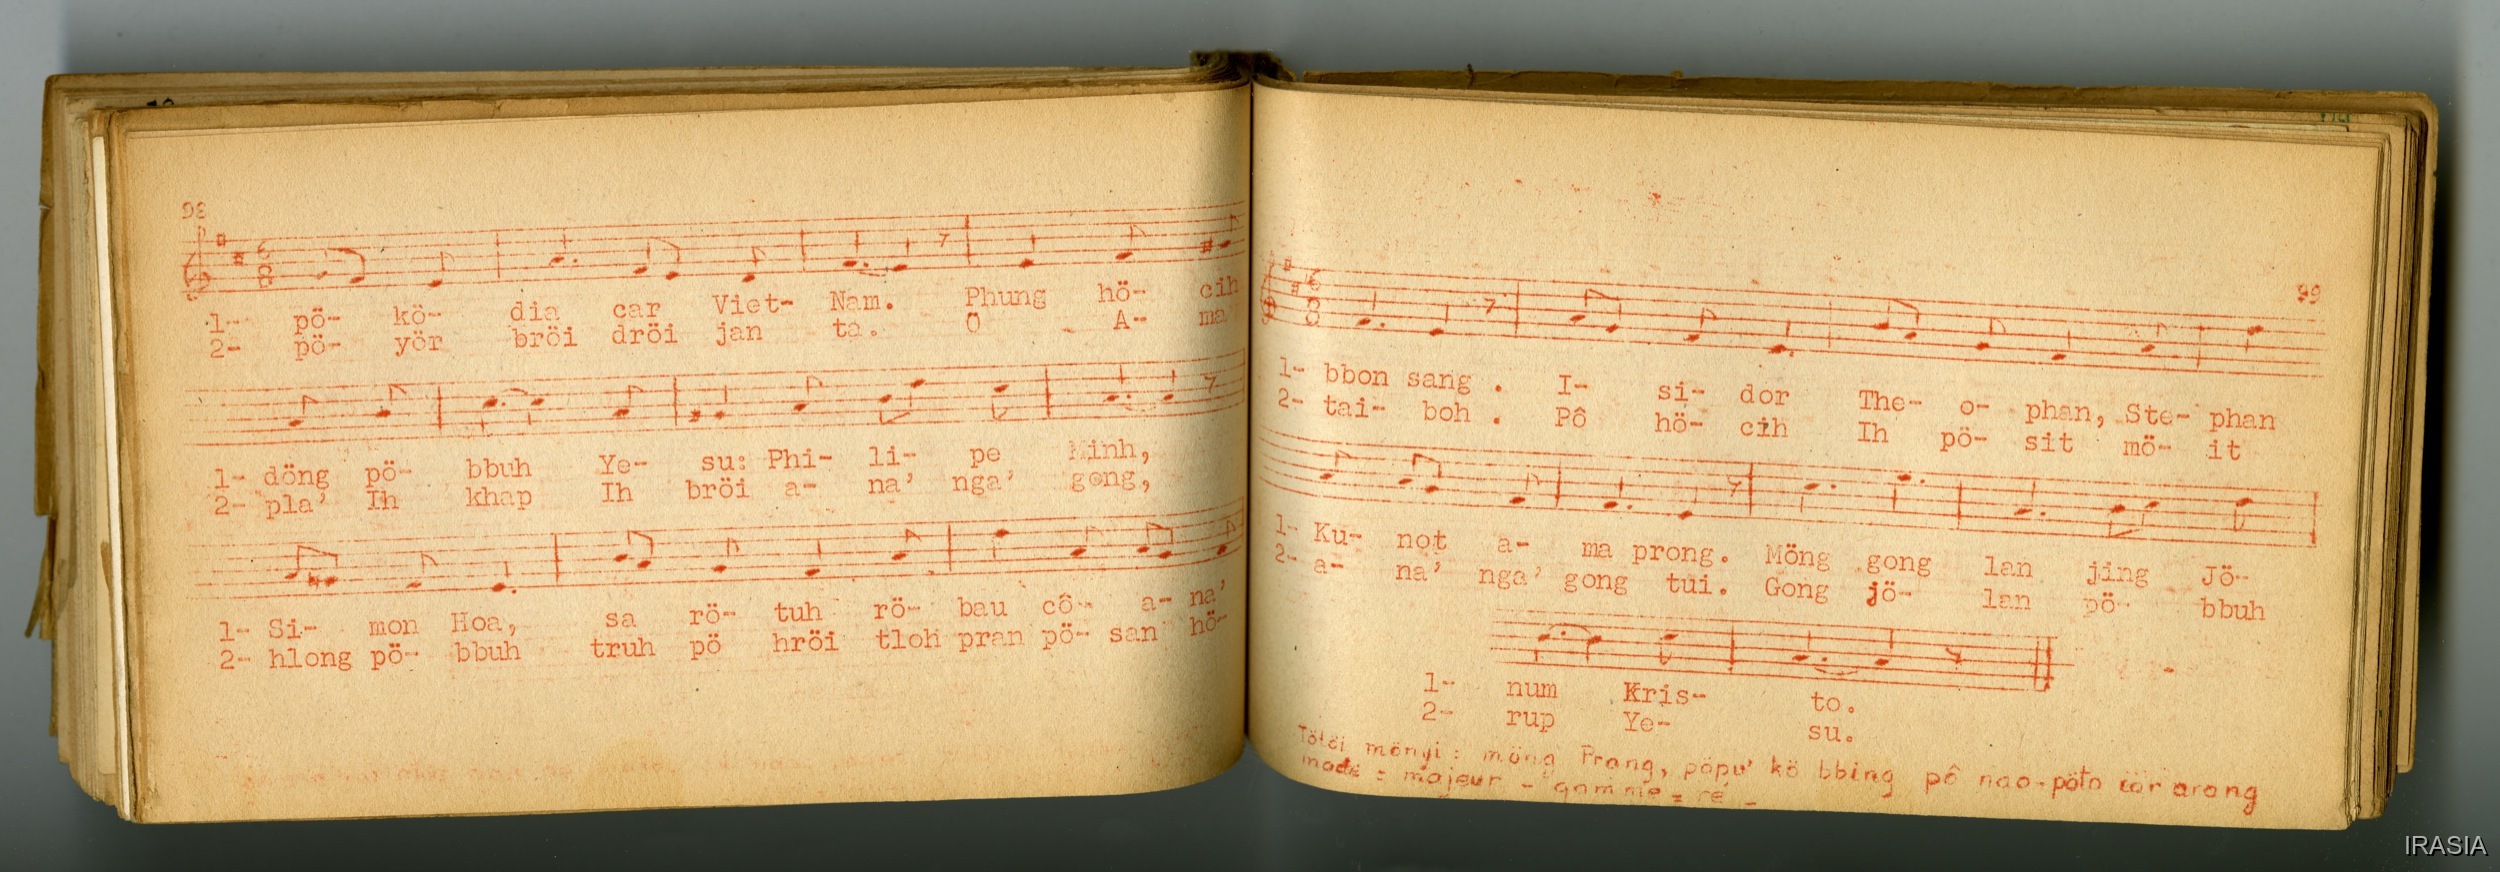 98
1- pö- kö- dia car Viet- Nam. Phung hö- cih
2- pö- yör bröi dröi jan ta. Ö A- ma
1- döng pö- bbuh Ye- su: Phi- li- pe Minh,
2- pla' Ih khap Ih bröi a- na' nga' gong,
1- Si- mon Hoa, sa rö- tuh rö- bau cô- a- na'
2- hlong pö- bbuh truh pö hröi tloh pran pö- san hö-
99
1- bbon sang. I- si- dor The- o- phan, Ste- phan
2- tai- boh. Pô hö- cih Ih pö- sit mö- it
1- Ku- not a- ma prong. Möng gong lan jing Jö-
2- a- na' nga' gong tui. Gong jö- lan pö- bbuh
1- num Kris- to.
2- rup Ye- su.
mönyi: möng Prang, pöpu' kö bbing pô nao-pöto cör arang
mode = majeur - gamme = ré -
IRASIA